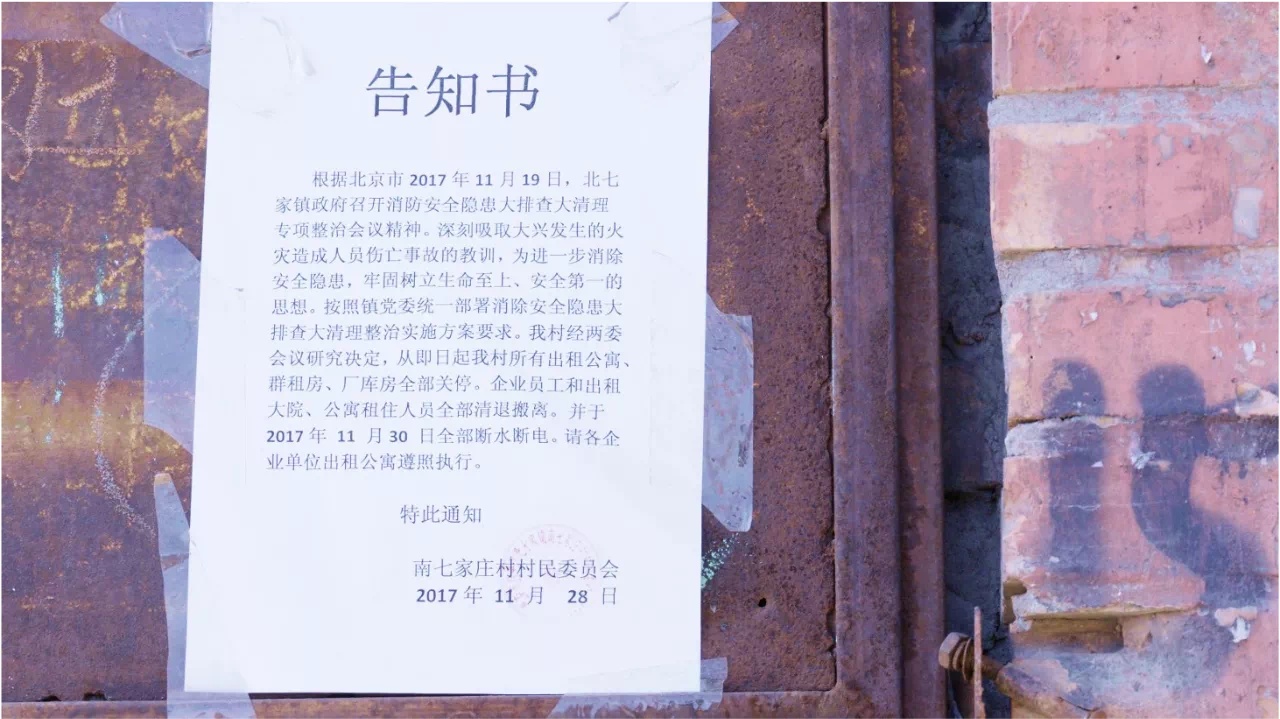 告知书
根据北京市 2017 年 11 月 19 日，北七
家镇政府召开消防安全隐患大排查大清理
专项整治会议精神。深刻吸取大兴发生的火
灾造成人员伤亡事故的教训，为进一步消除
安全隐患，牢固树立生命至上、安全第一的
思想。按照镇党委统一部署消除安全隐患大
排查大清理整治实施方案要求。我村经两委
会议研究决定，从即日起我村所有出租公寓、
群租房、厂库房全部关停。企业员工和出租
大院、公寓租住人员全部清退搬离。并于
2017 年 11 月 30 日全部断水断电。请各企
业单位出租公寓遵照执行。
特此通知
南七家庄村村民委员会
2017 年 11 月 28 日